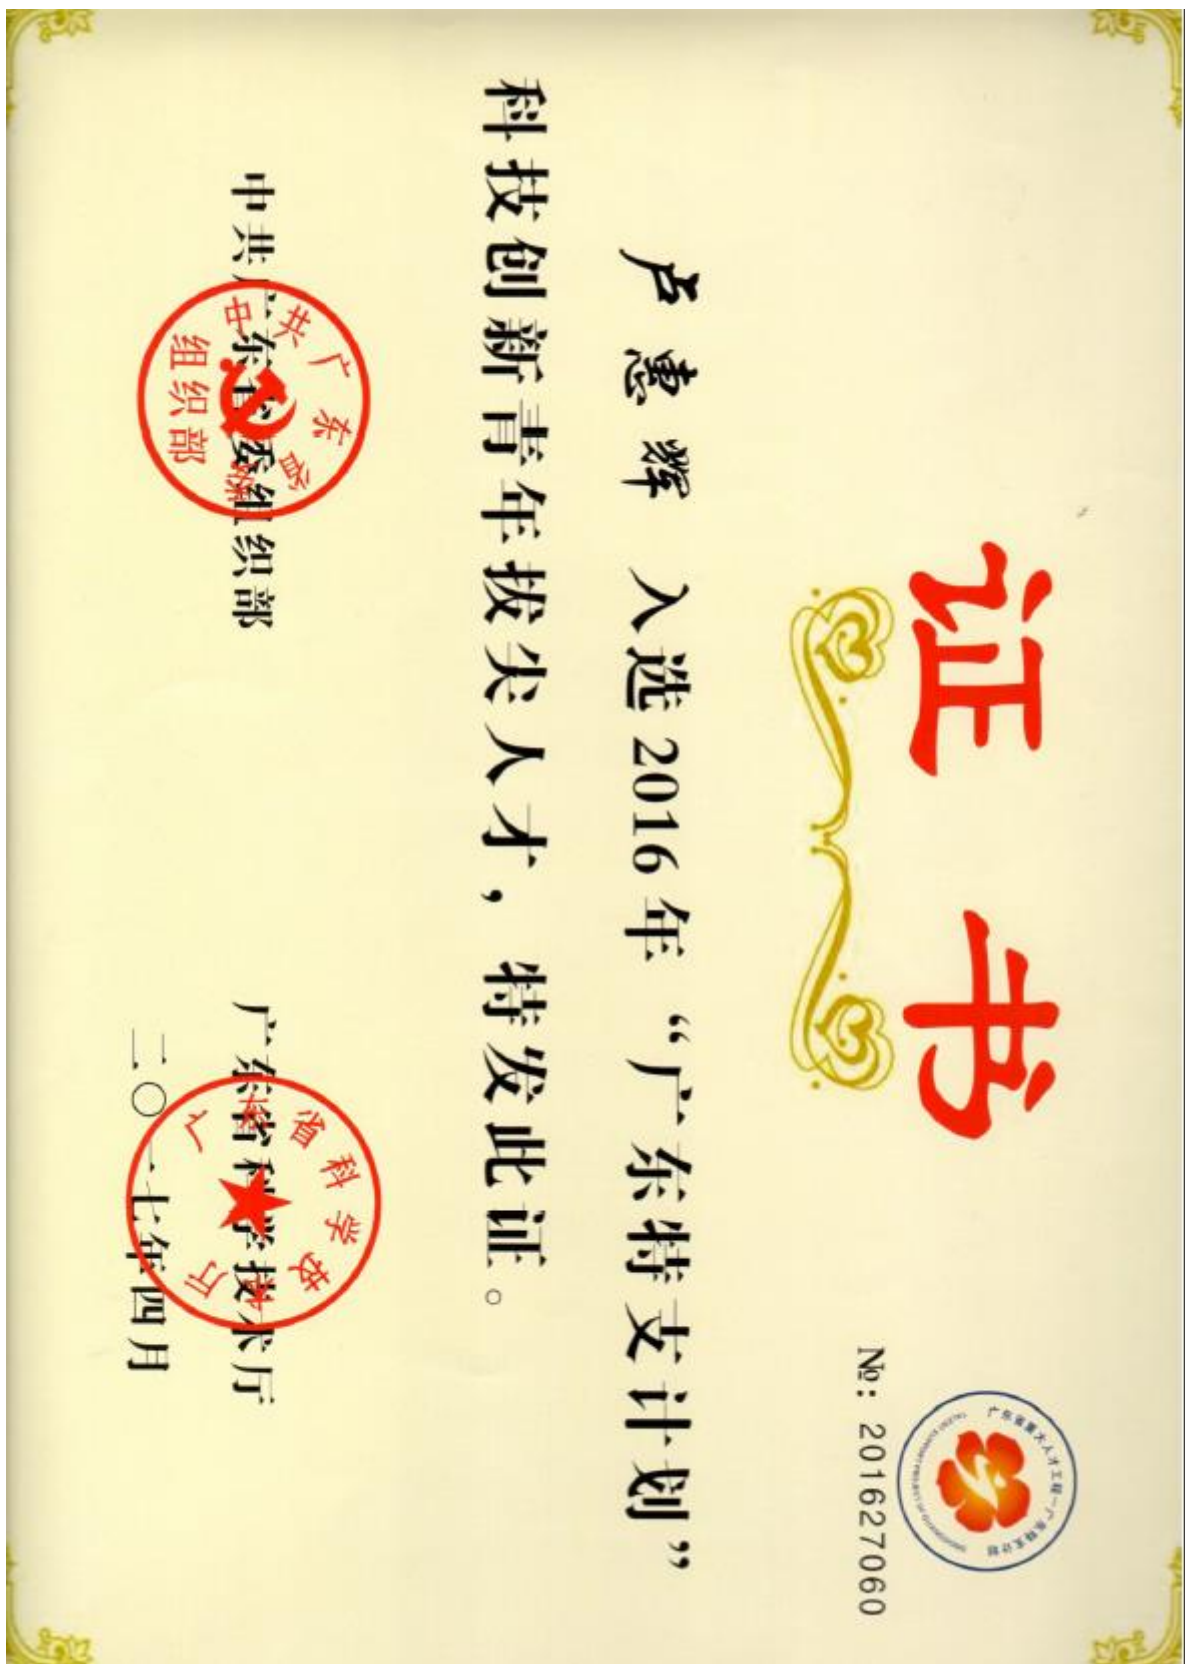 广东省重大人才工程—广东特支计划
№: 201627060
证书
卢惠辉 入选2016年“广东特支计划”
科技创新青年拔尖人才，特发此证。
中共广东省委组织部
广东省科学技术厅
二〇一七年四月
中共广东省委
组织部
广东省科学技术厅